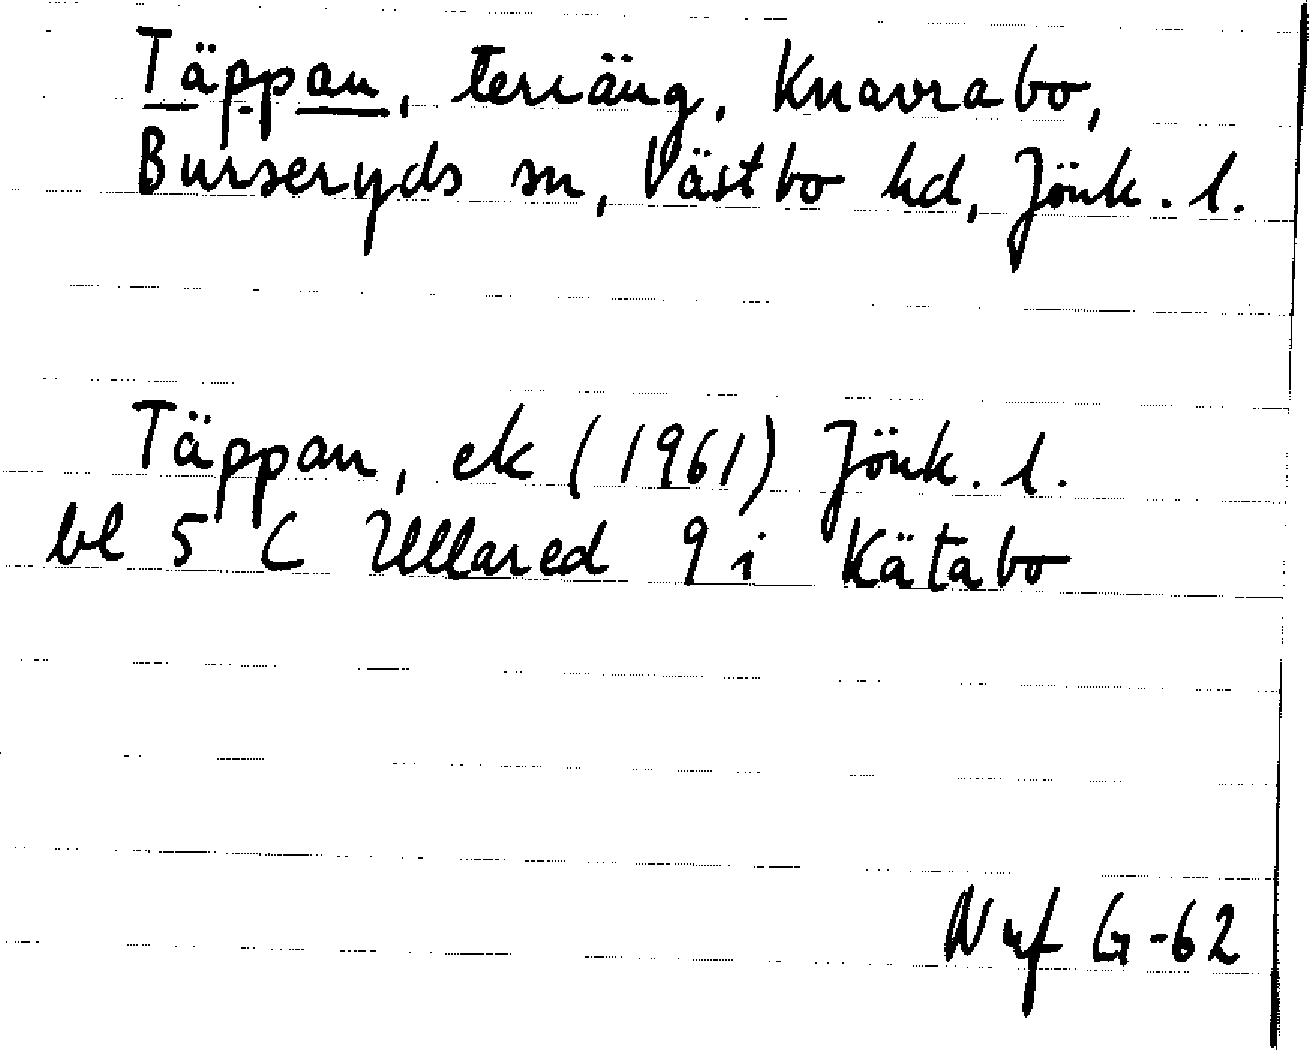 Täppan, teriäng, Knavrabo,
Burseryds sn, Västbo hd, Jönk. l.
Täppan, ek (1961) Jönk. l.
bl 5 C Ullared 9 i Kätabo
Nuf G-62